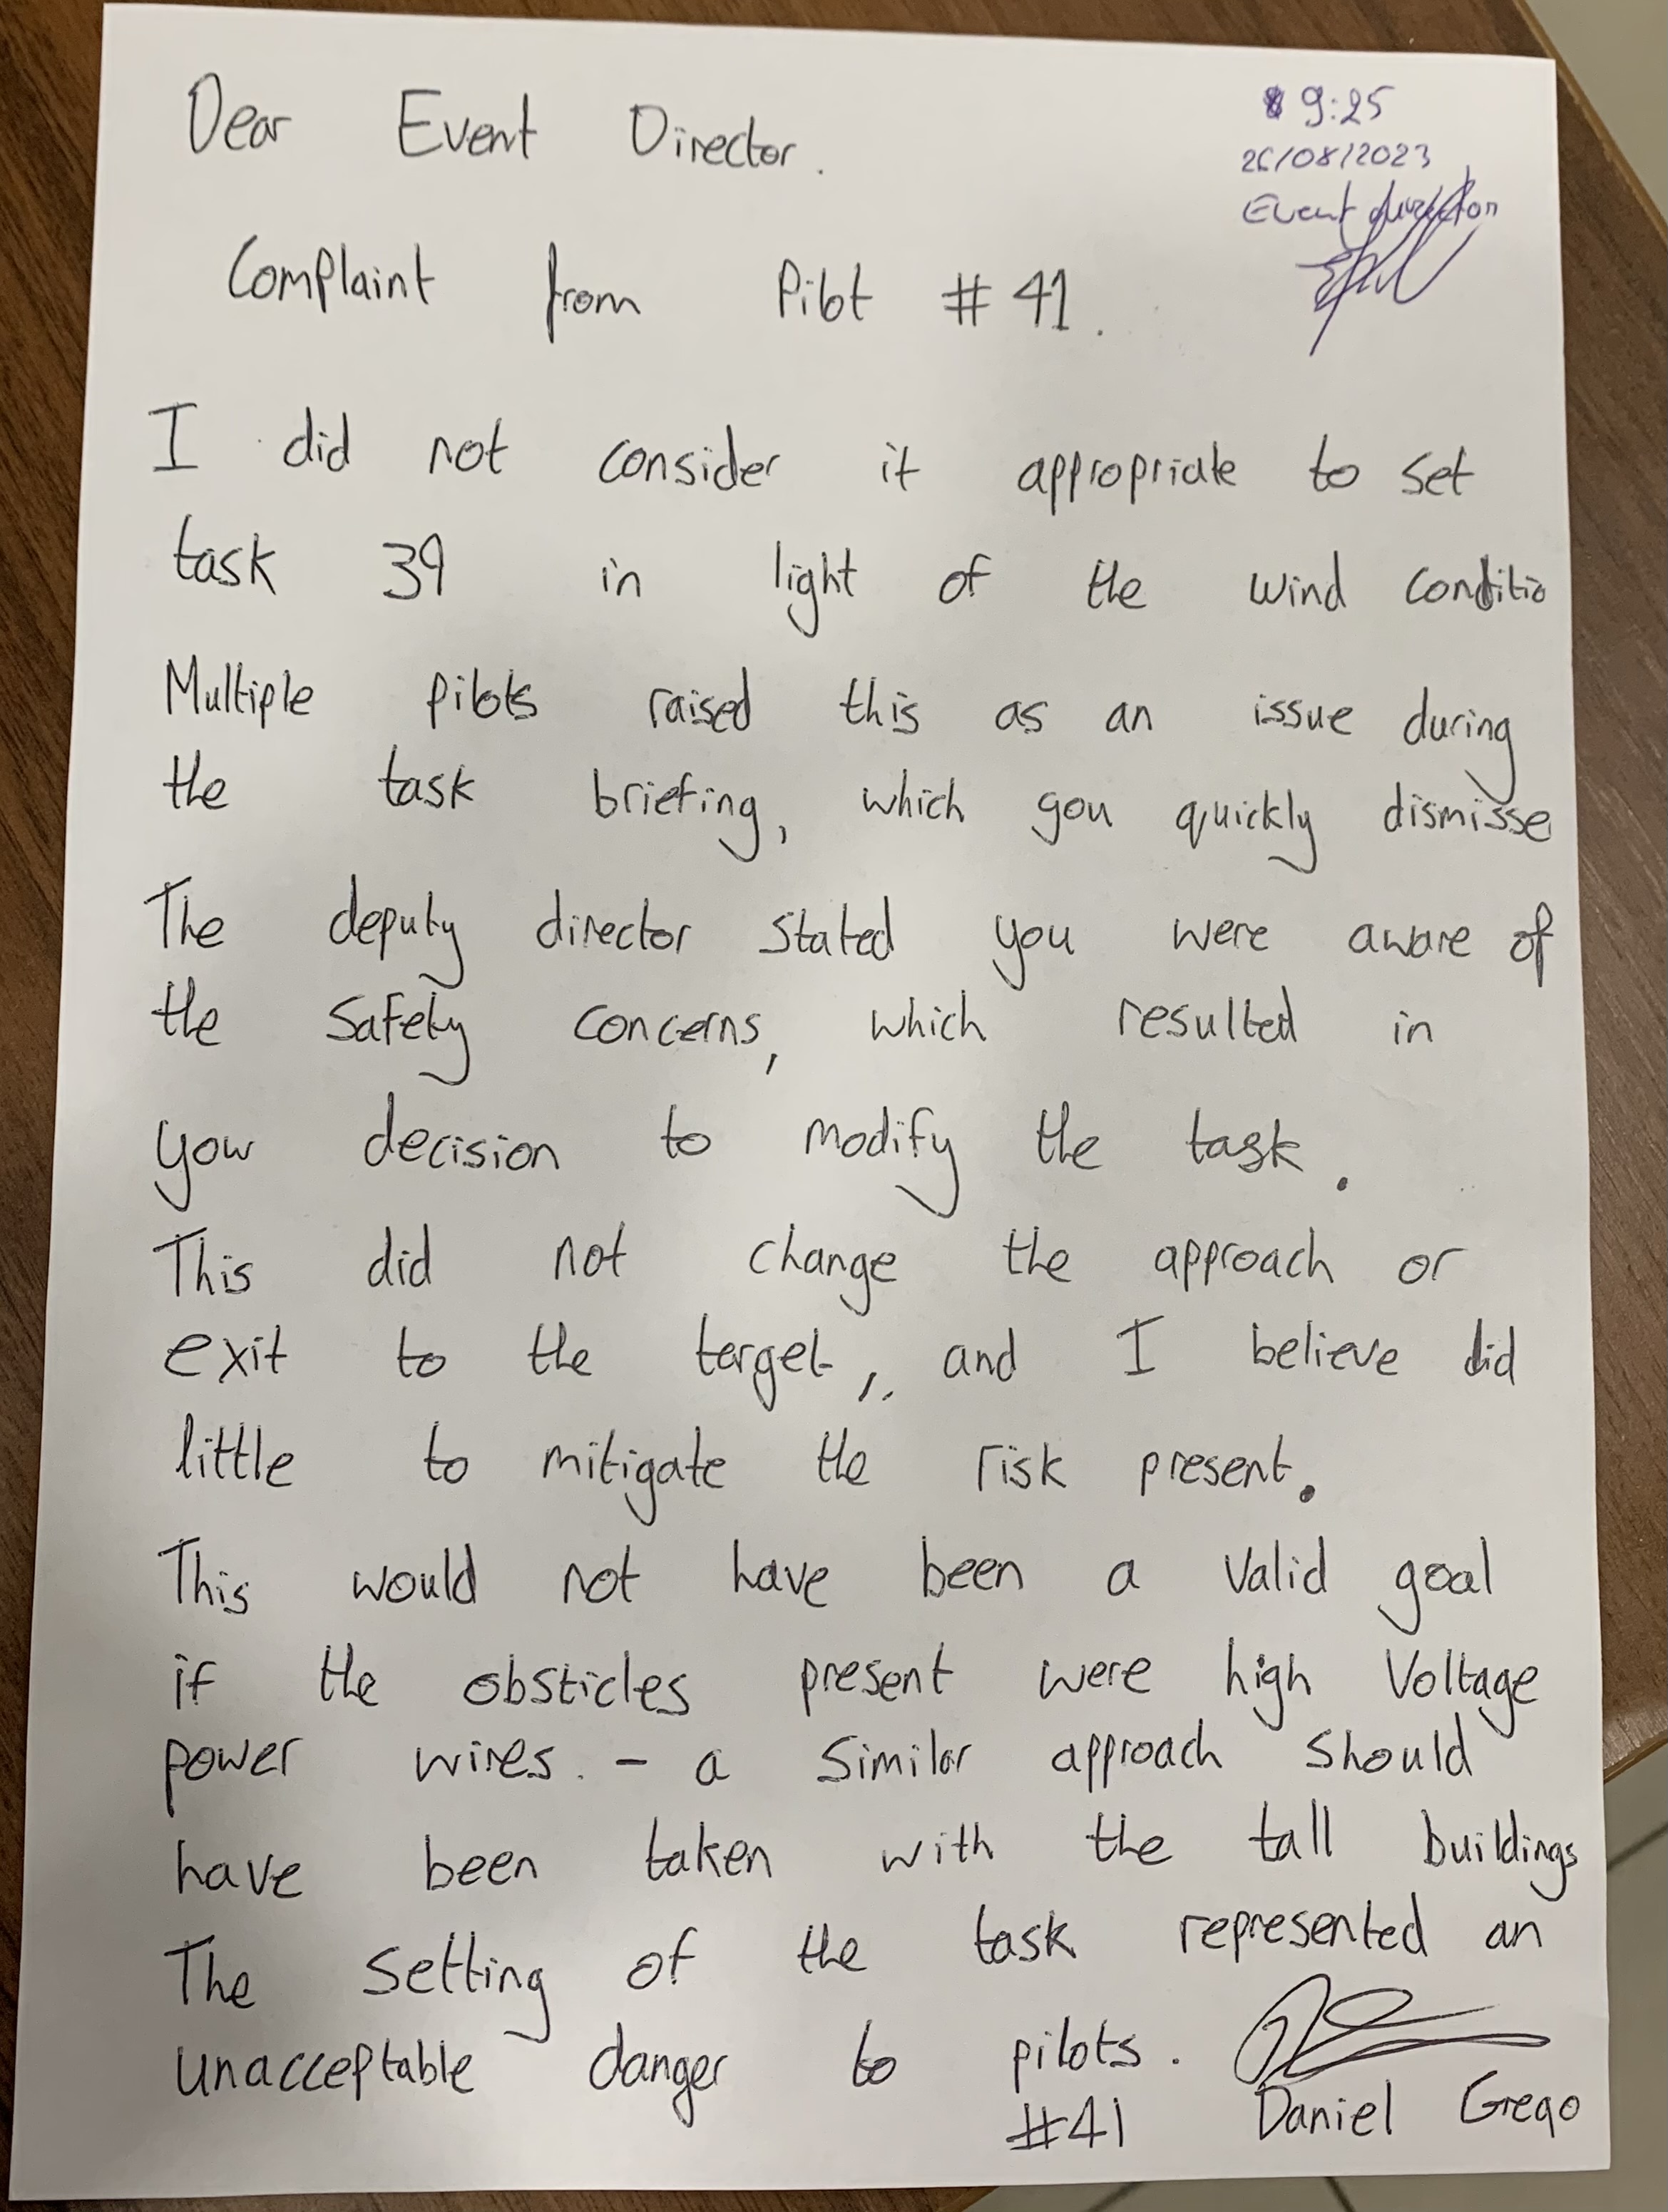 Dear Event Director.
9:25
26/08/2023
Event director
Complaint from Pilot #41.
I did not consider it appropriate to set
task 39 in light of the wind conditio
Multiple pilots raised this as an issue during
the task briefing, which you quickly dismisse
The deputy director stated you were aware of
the safety concerns, which resulted in
your decision to modify the task.
This did not change the approach or
exit to the target, and I believe did
little to mitigate the risk present.
This would not have been a valid goal
if the obsticles present were high voltage
power wires. - a similar approach should
have been taken with the tall buildings
The setting of the task represented an
unacceptable danger to pilots.
#41 Daniel Grego